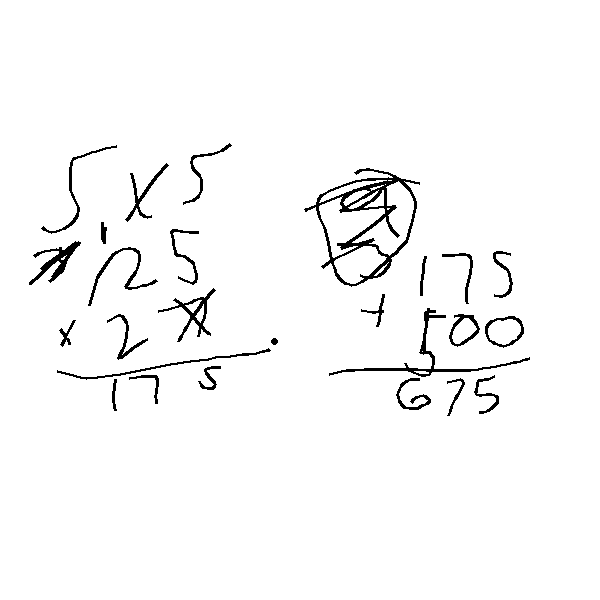 5 x 5
25
x 2
175
175
+ 500
675